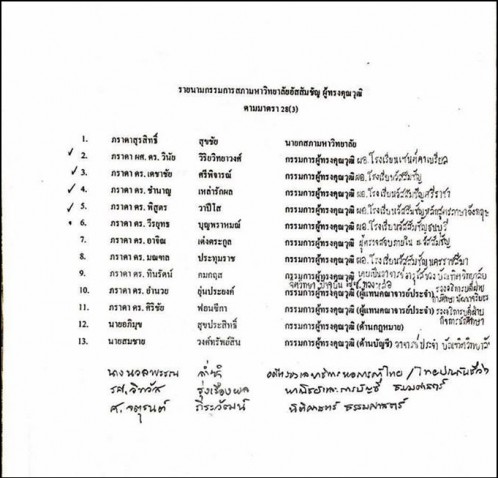 รายนามกรรมการสภามหาวิทยาลัยอัสสัมชัญ ผู้ทรงคุณวุฒิ
ตามมาตรา 28(3)
1. ภราดาสุรสิทธิ์ สุขชัย นายกสภามหาวิทยาลัย
✓ 2. ภราดา ผศ. ดร. วินัย วิริยวิทยาวงศ์ กรรมการผู้ทรงคุณวุฒิ ผอ. โรงเรียนเซนต์คาเบรียล
✓ 3. ภราดา ดร. เดชาชัย ศรีพิจารณ์ กรรมการผู้ทรงคุณวุฒิ ผอ. โรงเรียนอัสสัมชัญ
✓ 4. ภราดา ดร. ชำนาญ เหล่ารักผล กรรมการผู้ทรงคุณวุฒิ ผอ. โรงเรียนอัสสัมชัญศรีราชา
✓ 5. ภราดา ดร. พิสูตร วาปีโส กรรมการผู้ทรงคุณวุฒิ ผอ. โรงเรียนอัสสัมชัญหลักสูตรภาษาอังกฤษ
6. ภราดา ดร. วีรยุทธ บุญพราหมณ์ กรรมการผู้ทรงคุณวุฒิ ผอ. โรงเรียนอัสสัมชัญธนบุรี
7. ภราดา ดร. อาจิณ เต่งตระกูล กรรมการผู้ทรงคุณวุฒิ ผู้ตรวจสอบภายใน ม. อัสสัมชัญ
8. ภราดา ดร. มณฑล ประทุมราช กรรมการผู้ทรงคุณวุฒิ ผอ. โรงเรียนอัสสัมชัญนครราชสีมา
9. ภราดา ดร. ทินรัตน์ คมกฤส กรรมการผู้ทรงคุณวุฒิ
10. ภราดา ดร. อำนวย ยุ่นประยงค์ กรรมการผู้ทรงคุณวุฒิ (ผู้แทนคณาจารย์ประจำ)
11. ภราดา ดร. ศิริชัย ฟอนซีกา กรรมการผู้ทรงคุณวุฒิ (ผู้แทนคณาจารย์ประจำ)
12. นายอภิมุข สุขประสิทธิ์ กรรมการผู้ทรงคุณวุฒิ (ด้านกฎหมาย)
13. นายสมชาย วงศ์ทรัพย์สิน กรรมการผู้ทรงคุณวุฒิ (ด้านบัญชี) อาจารย์ประจำ บัณฑิตวิทยาลัย
นางนวลพรรณ ล่ำซำ
รศ. รุ่งเรืองผล ธรรมศาสตร์
ศ. จตุรนต์ ถิระวัฒน์ นิติศาสตร์ ธรรมศาสตร์